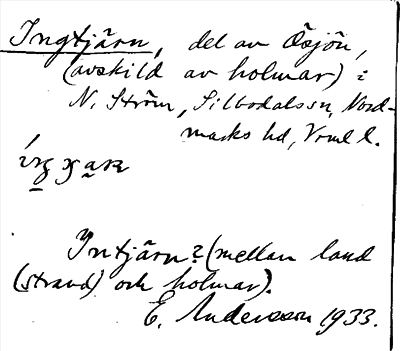 Ingtjärn, del av Ösjön,
(avskild av holmar) i
N. Ström, Silbodalssn, Nord-
marks hd, Vrml l.
Yntjärn? (mellan land
(strand) och holmar).
E. Andersson 1933.